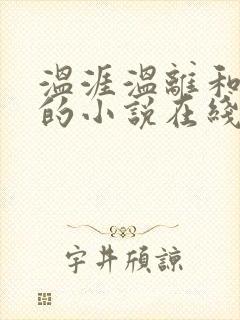 温涯温離和
的小说在綫
宇井頎諒